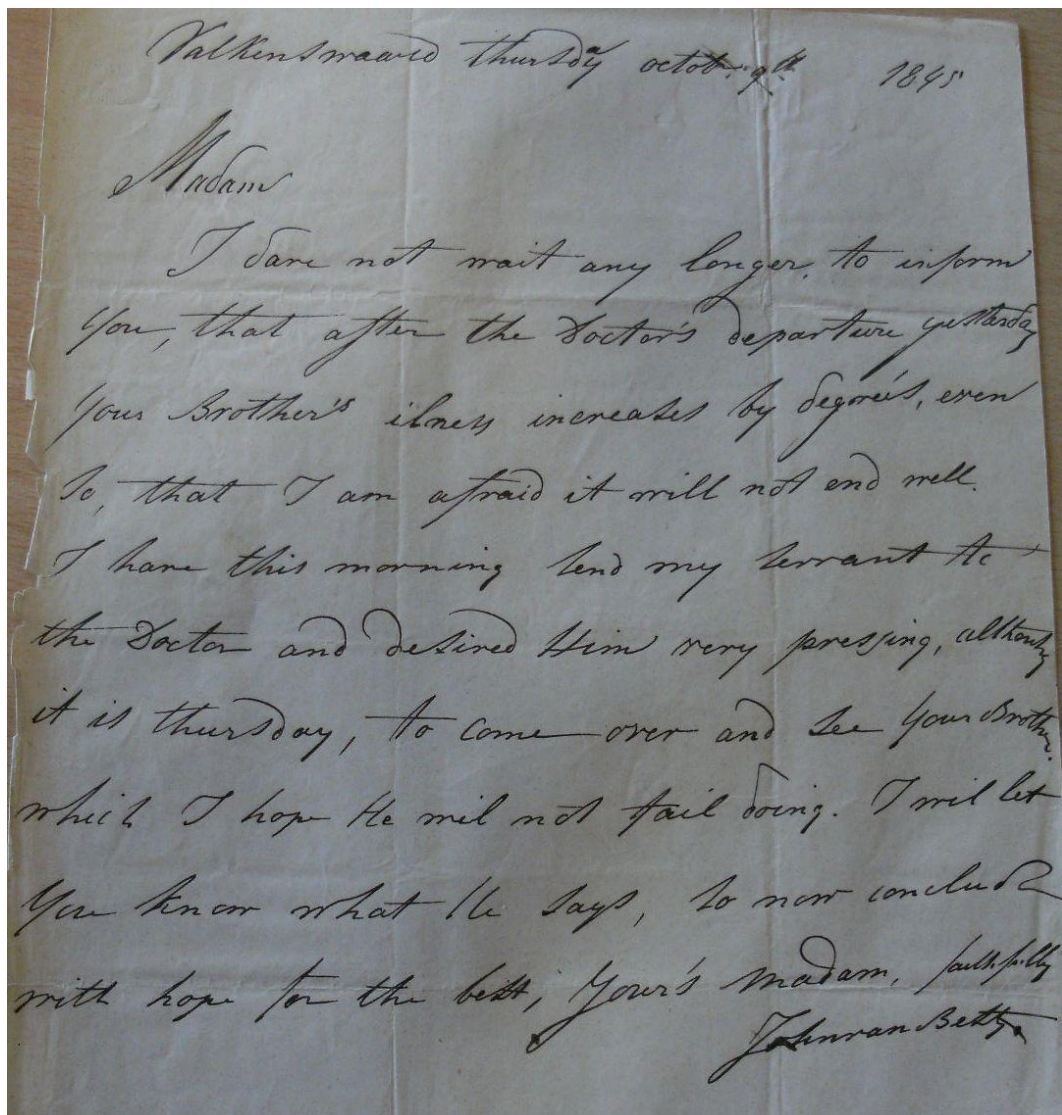 Valkenswaard thursday octob. 9th 1845
Madam
I dare not wait any longer, to inform
You, that after the Doctor's departure yesterday
Your Brother's ilness increases by degree's, even
so, that I am afraid it will not end well.
I have this morning send my servant to
the Doctor and desired Him very pressing, although
it is thursday, to come over and see Your Brother.
which I hope He wil not fail doing. I wil let
You know what He says, so now conclude
with hope for the best, Your's Madam, faithfully
John van Bett